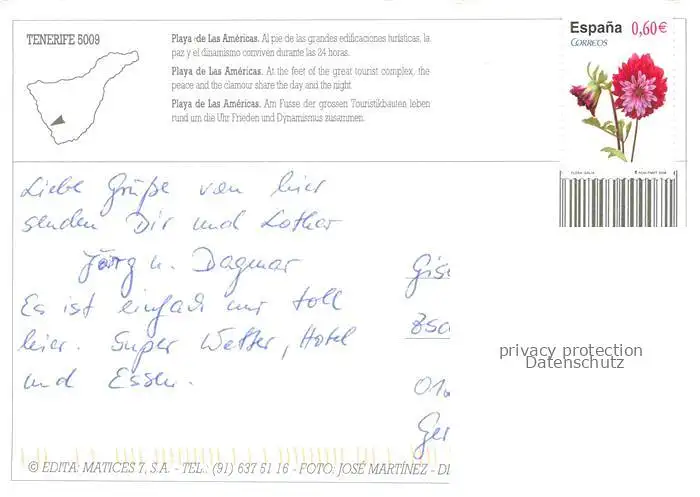 TENERIFE 5009
Playa de Las Américas. Al pie de las grandes edificaciones turísticas, la
paz y el dinamismo conviven durante las 24 horas.
Playa de Las Américas. At the feet of the great tourist complex, the
peace and the clamour share the day and the night.
Playa de Las Américas. Am Fusse der grossen Touristikbauten leben
rund um die Uhr Frieden und Dynamismus zusammen.
España 0,60€
CORREOS
Liebe Grüße von hier
senden Dir und Lothar
Jörg u. Dagmar
Es ist einfach nur toll
hier. Super Wetter, Hotel
und Essen.
Gis
Zsc
01
Ger
privacy protection
Datenschutz
© EDITA: MATICES 7, S.A. - TEL.: (91) 637 51 16 - FOTO: JOSÉ MARTÍNEZ - D